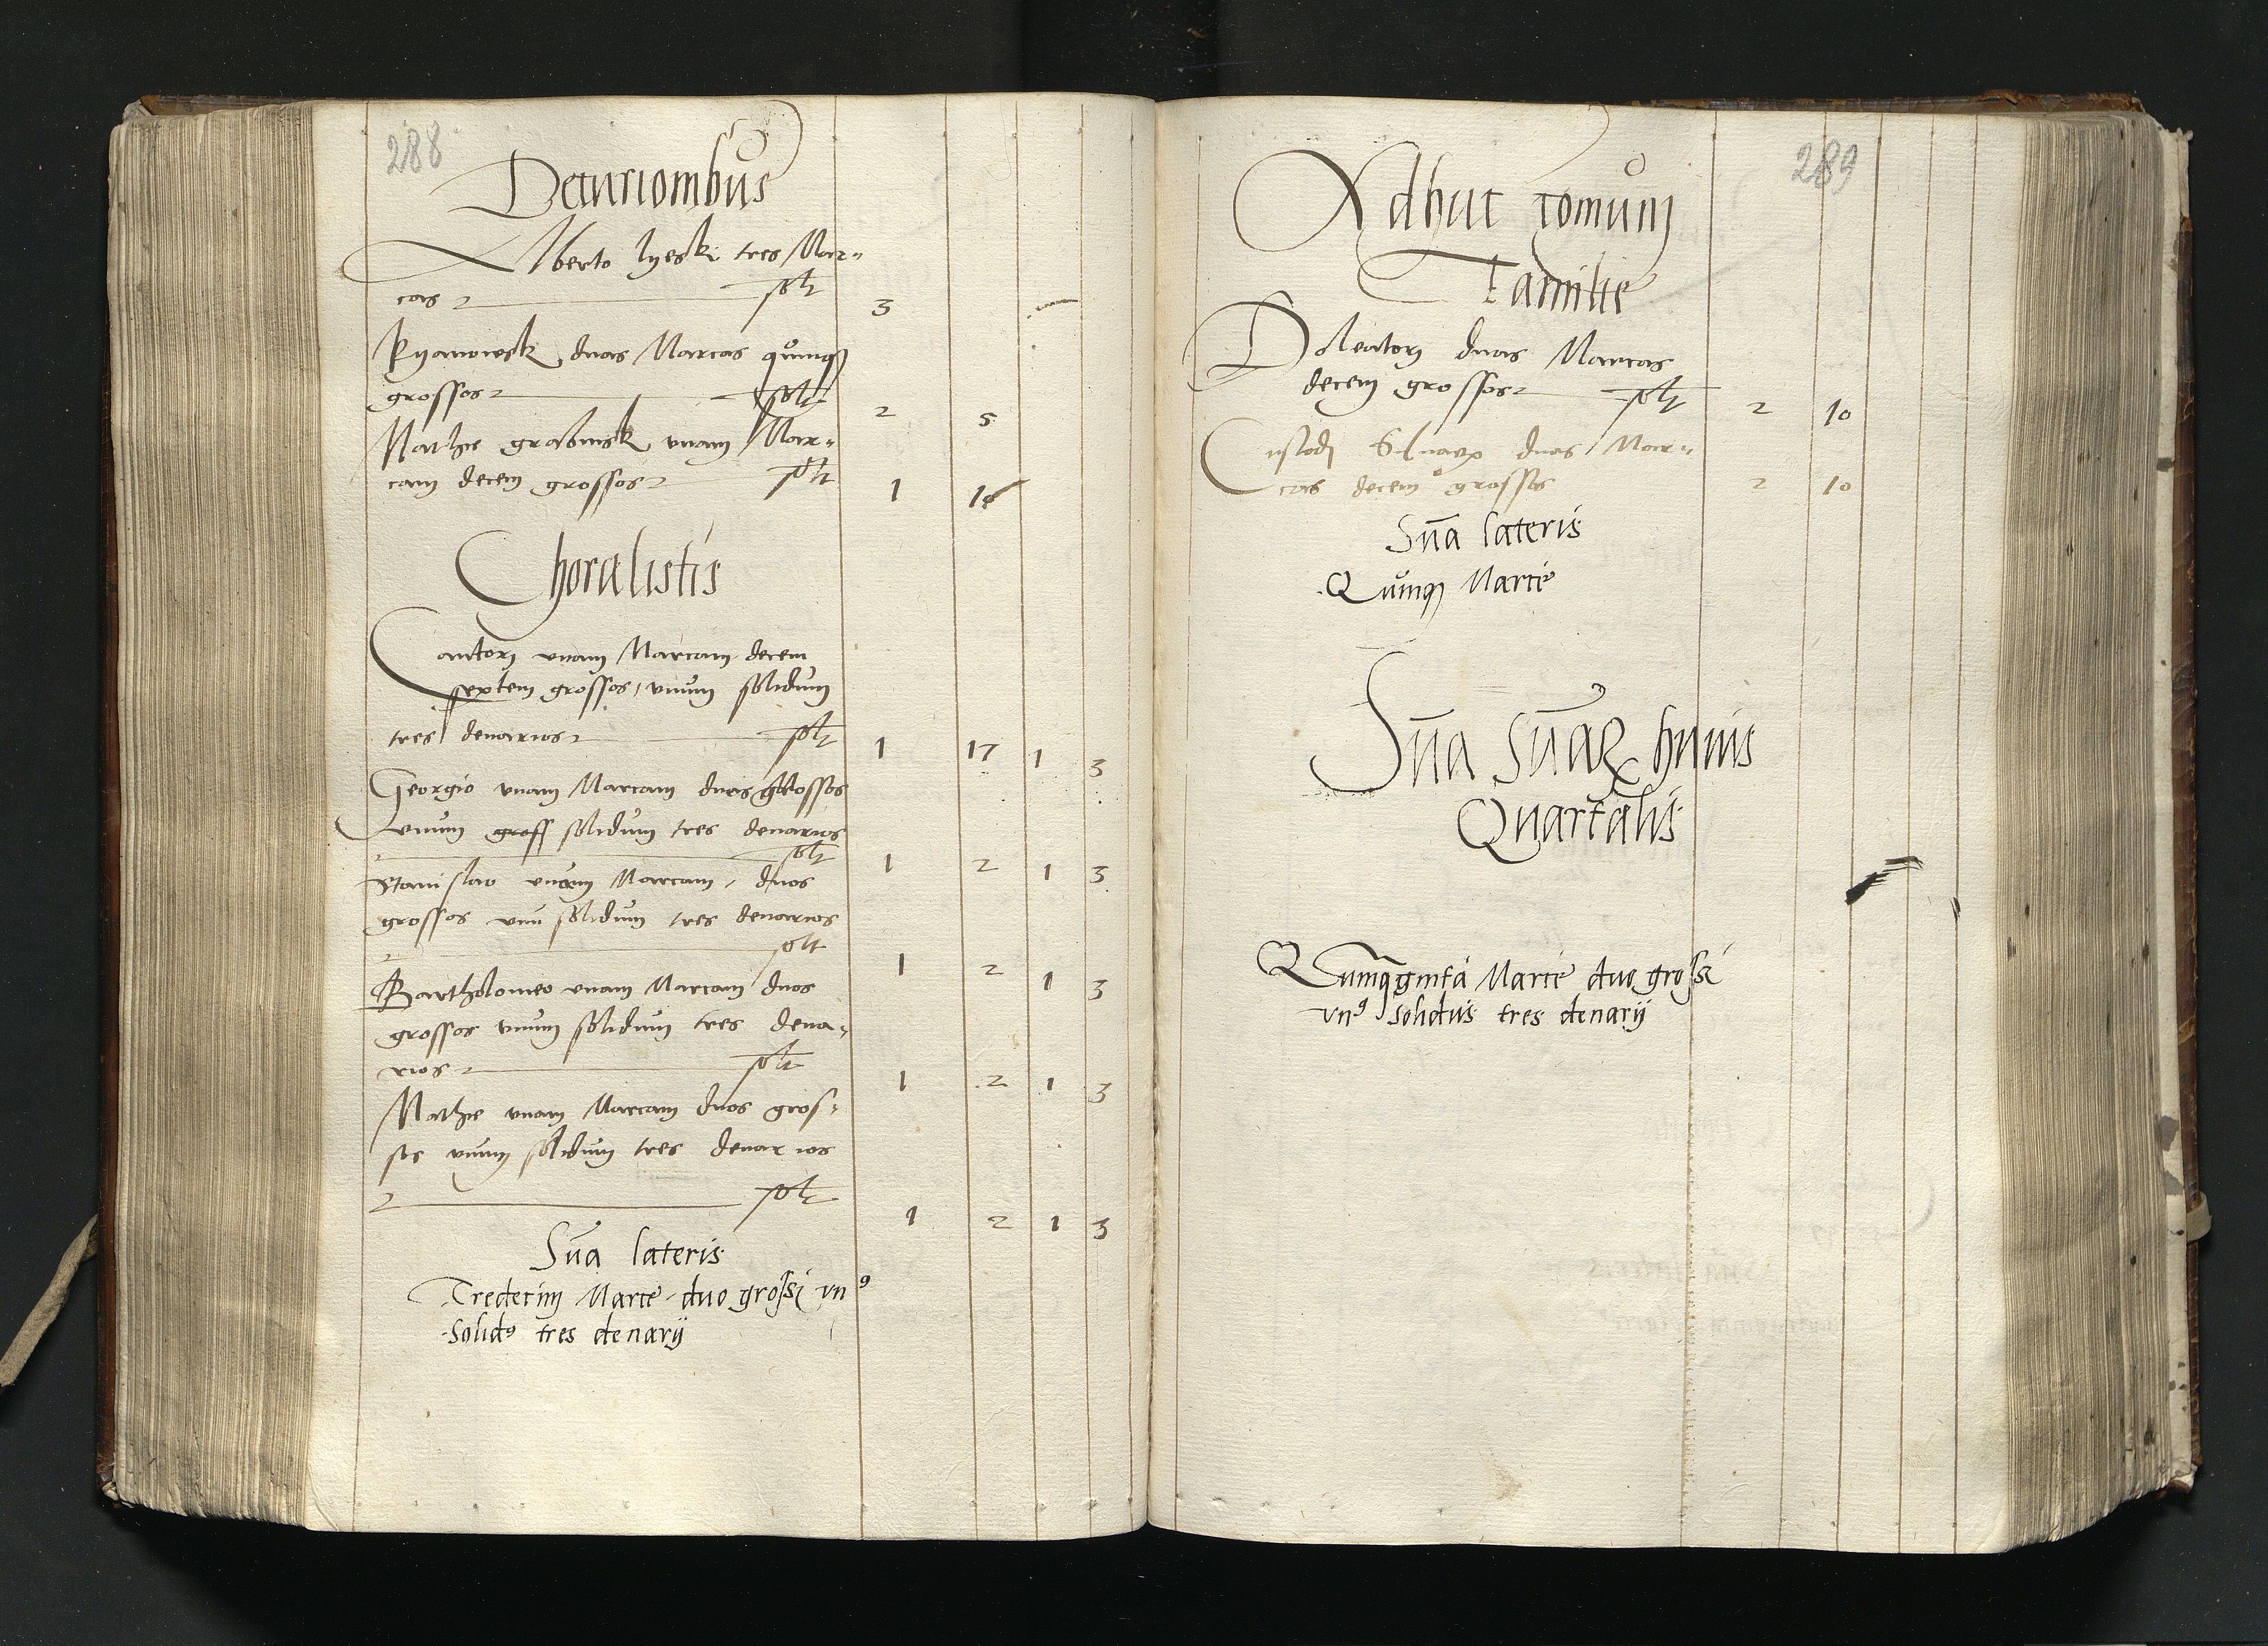 288
Decurionibus
Alberto lyeski tres Mar¬
cas solt 3
Ryanowsk duas Marcas quinq3
grossos solt 2 5
Mathie grabinsk vnam Mar¬
cam decem grossos solt 1 10
Choralistis
Cantorj vnam Marcam decem
septem grossos, vnum solidum
tres denarios solt 1 17 1 3
Georgio vnam Marcam duos grossos
vnum gross solidum tres denarios
solt 1 2 1 3
Stanislao vnam Marcam, duos
grossos vnu solidum tres denarios
solt 1 2 1 3
Bartholomeo vnam Marcam duos
grossos vnum solidum tres dena¬
rios solt 1 2 1 3
Mathie vnam Marcam duos gros¬
sos vnum solidum tres denarios
solt 1 2 1 3
Sūa lateris
Tredecim Marce duo grossi vn9
solid9 tres denarij
289
Adhuc comuni
Familie
Doleatorj duas Marcas
decem grossos solt 2 10
Custodj Siluarꝝ duas Mar¬
cas decem grossos 2 10
Sūa lateris
Quinq3 Marce
Sūa Sūaꝝ huius
Quartalis
Quinquaginta Marce duo grossi
vn9 solidus tres denarij